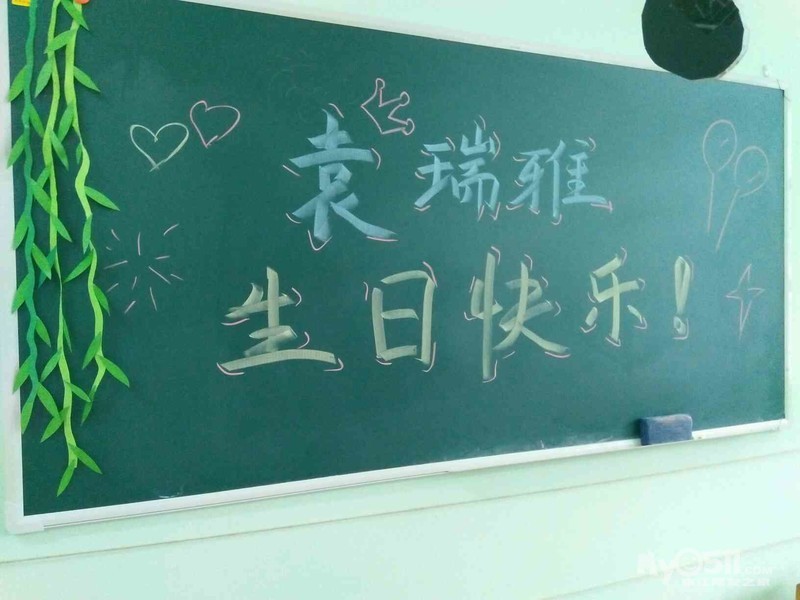 袁瑞雅
生日快乐!